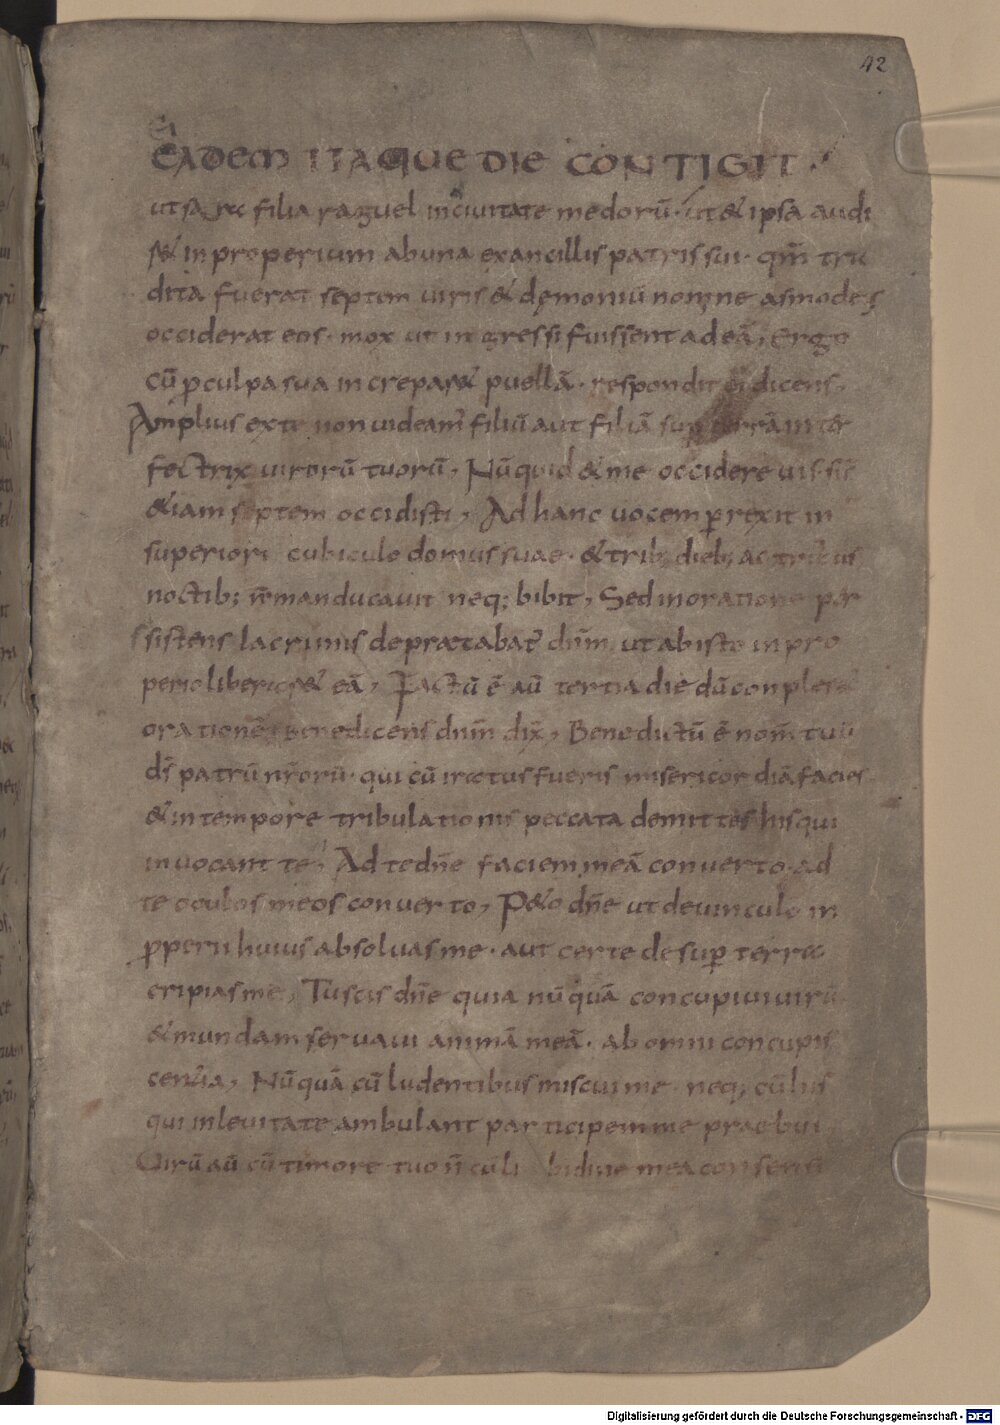 42
EADEM ITAQUE DIE CONTIGIT .
ut sara filia raguel inciuitate medorū· ut & ipsa audi
r& inproperium abuna exancillis patris sui· qm̄ tra
dita fuerat septem uiris & dęmoniū nomine asmodeus
occiderat eos· mox ut ingressi fuissent ad eā, Ergo
cū ꝓculpa sua increpar& puellā· respondit ei dicens,
Amplius exte non uideam̄ filiū aut filiā sup terrā inter
fectrix uirorū tuorū, Nūquid & me occidere uis· sic
&iam septem occidisti, Ad hanc uocem ꝑrexit in
superiori cubiculo domus suae· & trib; dieb; ac tribus
noctib; n̄ manducauit neq; bibit, Sed inoratione per
sistens lacrimis depraecabat̄ dn̄m ut abisto inpro
perio liberar& eā, Factū ē aū tertia die dū conpler&
orationē benedicens dn̄m dix̄, Benedictū ē nom̄ tuū
ds̄ patrū nr̄orū· qui cū iratus fueris misericordiā facies
& in tempore tribulationis peccata demittes hisqui
inuocant te, Ad te dn̄e faciem meā conuerto· ad
te oculos meos conuerto, P&o dn̄e ut deuinculo in
ꝓperii huius absoluas me· aut certe desuꝑ terra
eripias me, Tu scis dn̄e quia nūquā concupiui uirū
& mundam seruaui animā meā· ab omni concupis
centia, Nūquā cū ludentibus miscui me· neq; cū his
qui inleuitate ambulant participem me praebui,
Uirū aū cū timore tuo n̄ cū libidine mea consensi
Digitalisierung gefördert durch die Deutsche Forschungsgemeinschaft - DFG